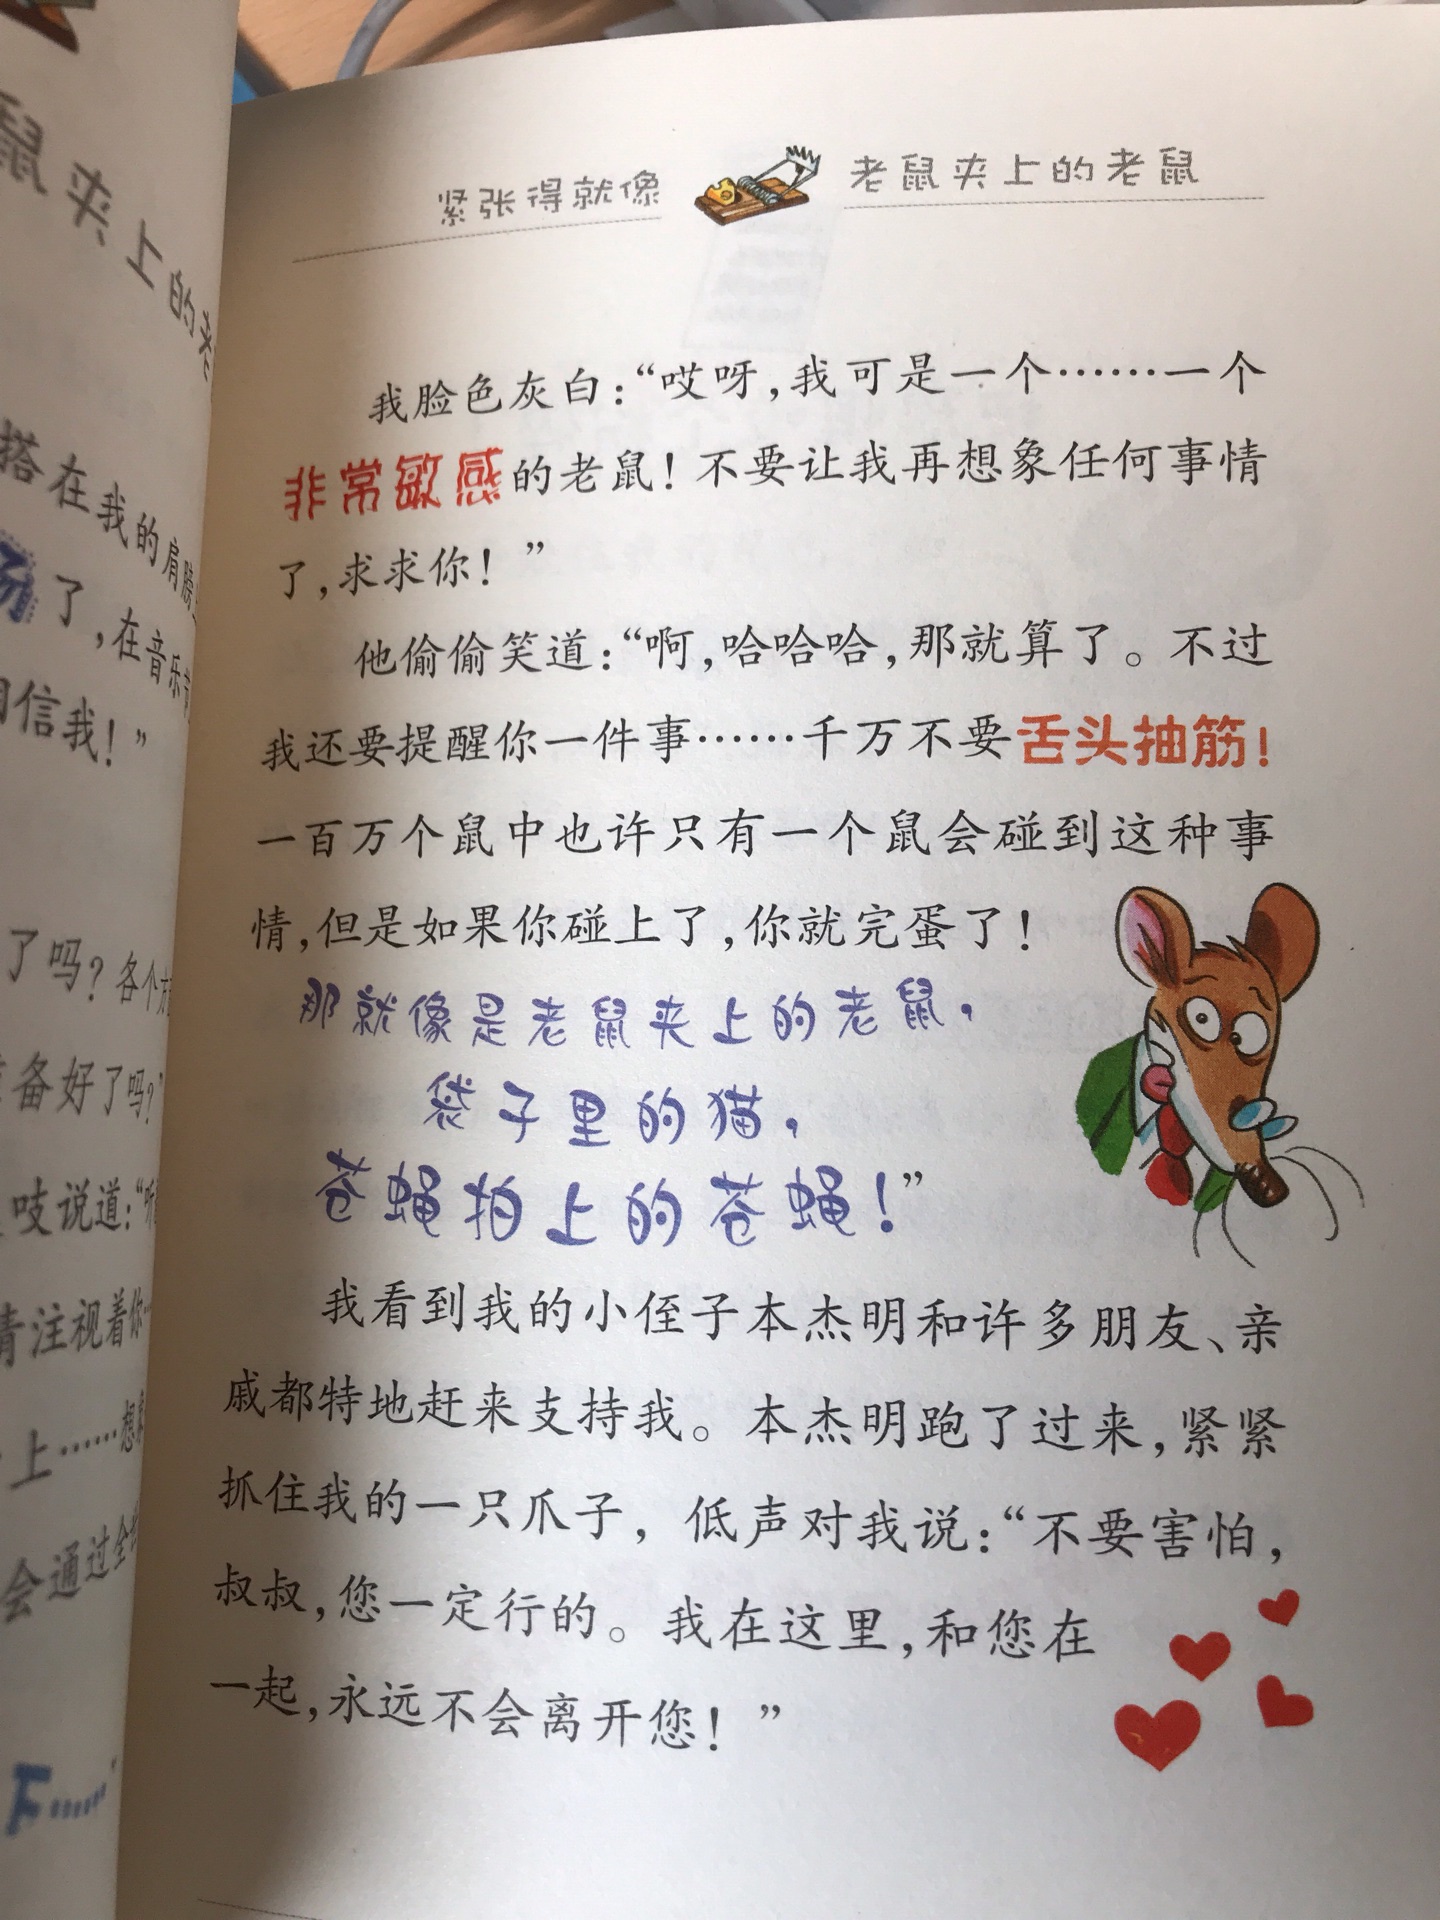 鼠夹上的老
搭在我的肩膀
了,在音乐
信我!”
了吗?各个方
备好了吗?”
吱说道:“听
请注视着你
上……想象
会通过全
下……
紧张得就像 老鼠夹上的老鼠
我脸色灰白:“哎呀,我可是一个……一个
非常敏感的老鼠!不要让我再想象任何事情
了,求求你!”
他偷偷笑道:“啊,哈哈哈,那就算了。不过
我还要提醒你一件事……千万不要舌头抽筋!
一百万个鼠中也许只有一个鼠会碰到这种事
情,但是如果你碰上了,你就完蛋了!
那就像是老鼠夹上的老鼠,
袋子里的猫,
苍蝇拍上的苍蝇!”
我看到我的小侄子本杰明和许多朋友、亲
戚都特地赶来支持我。本杰明跑了过来,紧紧
抓住我的一只爪子,低声对我说:“不要害怕,
叔叔,您一定行的。我在这里,和您在
一起,永远不会离开您!”